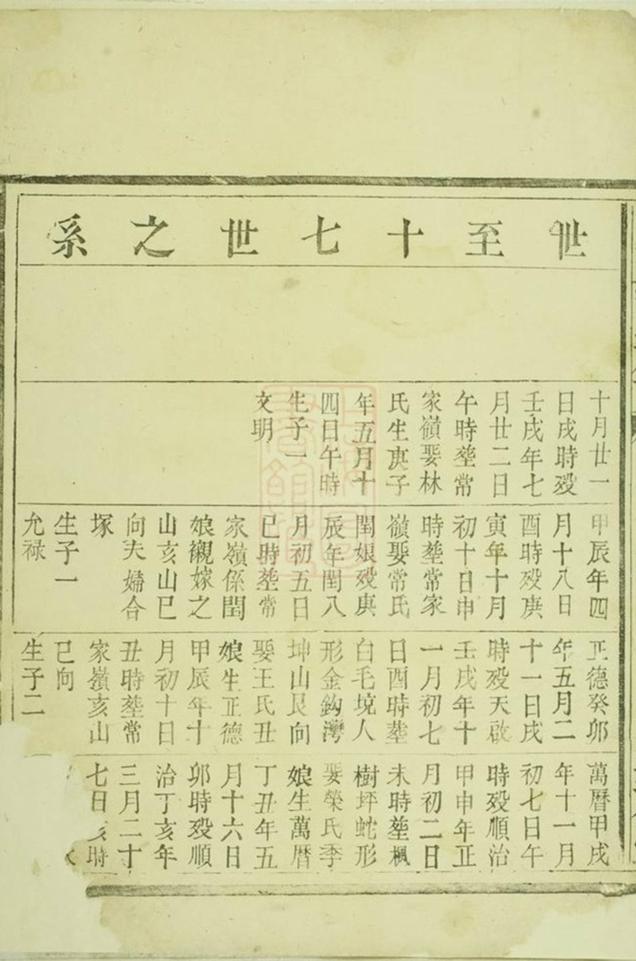 世至十七世之系
十月廿一
日戌時殁
壬戌年七
月廿二日
午時塟常
家嶺娶林
氏生庚子
年五月十
四日午時
生子一
文明
甲辰年四
月十八日
酉時殁庚
寅年十月
初十日申
時塟常家
嶺娶常氏
閏娘殁庚
辰年閏八
月初五日
巳時塟常
家嶺係閏
娘襯嫁之
山亥山巳
向夫婦合
塚
生子一
允禄
正德癸卯
年五月二
十一日戌
時殁天啟
壬戌年十
一月初七
日酉時塟
白毛境人
形金鈎灣
坤山艮向
娶王氏丑
娘生正德
甲辰年十
月初十日
丑時塟常
家嶺亥山
巳向
生子二
萬曆甲戌
年十一月
初七日午
時殁順治
甲申年正
月初二日
未時塟楓
樹坪蛇形
娶榮氏李
娘生萬曆
丁丑年五
月十六日
卯時殁順
治丁亥年
三月二十
七日時